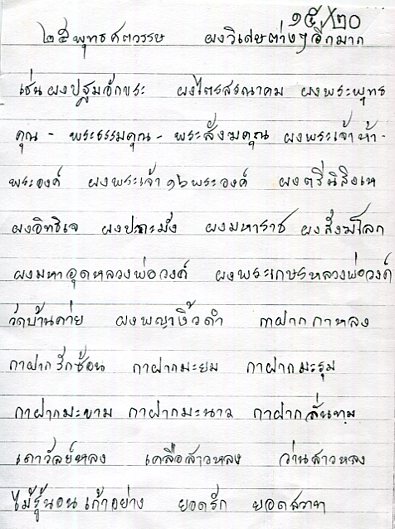 ๑๕/๒๐
๒๕ พุทธศตวรรษ ผงวิเศษต่างๆอีกมาก
เช่น ผงปฐมอักขระ ผงไตรสรณาคม ผงพระพุทธ
คุณ - พระธรรมคุณ - พระสังฆคุณ ผงพระเจ้าห้า-
พระองค์ ผงพระเจ้า ๑๖ พระองค์ ผงตรีนิสิงเห
ผงอิทธิเจ ผงปถะมัง ผงมหาราช ผงสังฆ์โลก
ผงมหาอุดหลวงพ่อวงศ์ ผงพระเกษรหลวงพ่อวงศ์
วัดบ้านค่าย ผงพญางิ้วดำ กาฝากกาหลง
กาฝากรักซ้อน กาฝากมะยม กาฝากมะรุม
กาฝากมะขาม กาฝากมะนาว กาฝากลั่นทม
เถาวัลย์หลง เครือสาวหลง ว่านสาวหลง
ไม้รู้นอนเก้าอย่าง ยอดรัก ยอดสวาท